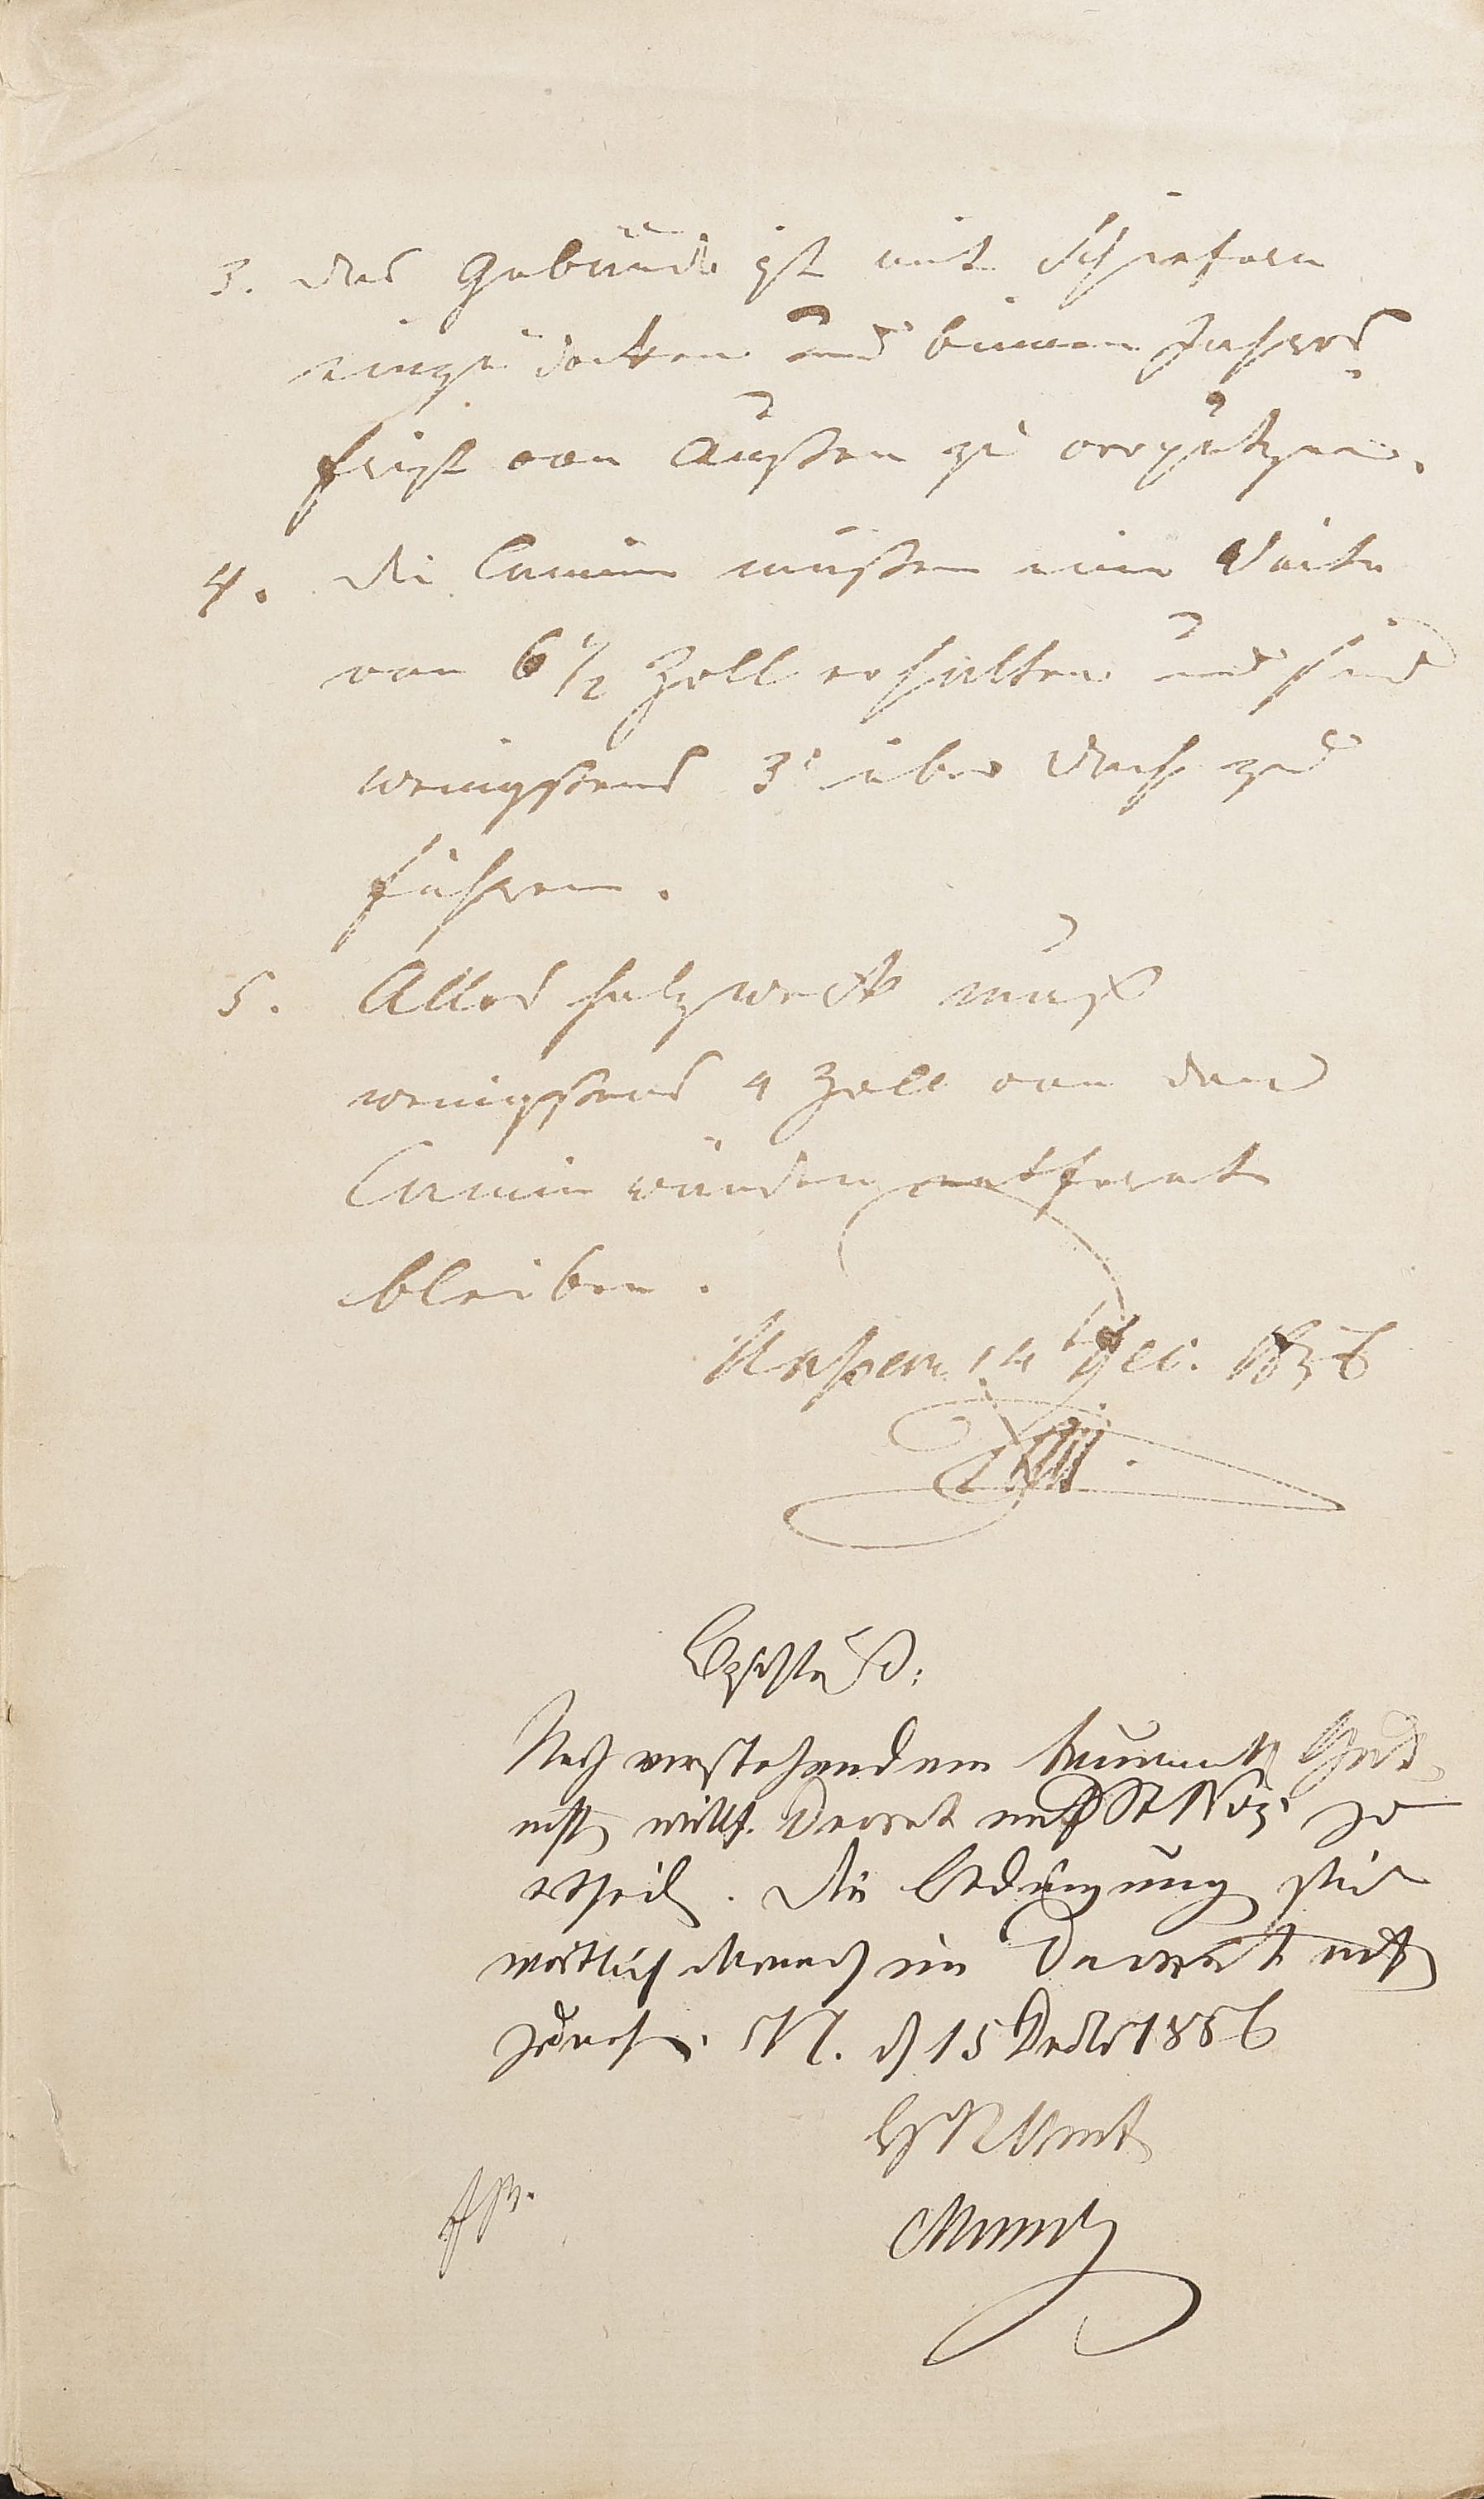 3. Das Gebäude ist mit Schiefern
einzudecken und binnen Jahres-
frist von Außen zu verputzen.
4. Die Camine müßen eine Weite
von 6 1/2 Zoll erhalten und sind
wenigstens 3' über Dach zu
führen.
5. Alles Holzwerk muß
wenigstens 4 Zoll von den
Caminwänden entfernt
bleiben.
14 Dec. 1856
Beschluß:
Nach vorstehendem
Decret zu
ertheilen. Die Bedingungen sind
wörtlich im Decret
15 1856